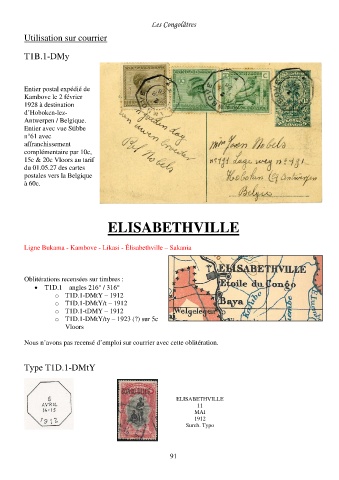 Les Congolâtres
Utilisation sur courrier
T1B.1-DMy
Entier postal expédié de
Kambove le 2 février
1928 à destination
d'Hoboken-lez-
Antwerpen / Belgique.
Entier avec vue Stibbe
n°61 avec
affranchissement
complémentaire par 10c,
15c & 20c Vloors au tarif
du 01.05.27 des cartes
postales vers la Belgique
à 60c.
Mevr Jean Nobels
Lage weg
Hoboken
Antwerpen
Belgie
ELISABETHVILLE
Ligne Bukama - Kambove - Likasi - Élisabethville – Sakania
Oblitérations recensées sur timbres :
• T1D.1 angles 216° / 316°
o T1D.1-DMtY – 1912
o T1D.1-DMtYñ – 1912
o T1D.1-tDMY – 1912
o T1D.1-DMtYñy – 1923 (?) sur 5c
Vloors
ELISABETHVILLE
Etoile du Congo
Baya
Welgelegen
Nous n'avons pas recensé d'emploi sur courrier avec cette oblitération.
Type T1D.1-DMtY
8
AVRIL
14-15
1912
ELISABETHVILLE
11
MAI
1912
Surch. Typo
91